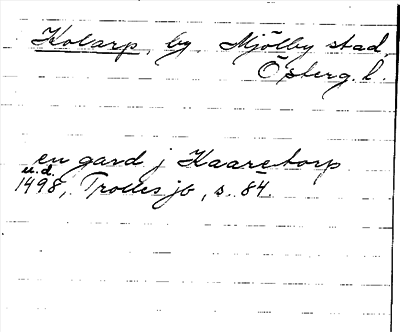 Kolarp, by. Mjölby stad,
Österg. l.
en gard j Kaaretorp
u.d.
1498, Trolles jb, s. 84